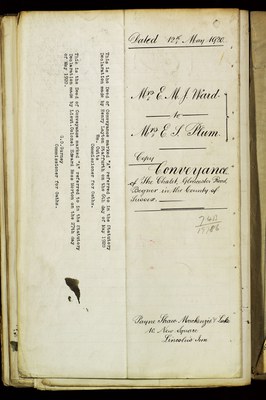 Dated 12th May 1920.
Mrs E. M. J. Ward
to
Mrs E. S. Plum.
Copy
Conveyance
of The Chalet, Gloucester Road,
Bognor in the County of
Sussex.
740
Payne Shaw Mackenzie & Lake
10. New Square
Lincolns Inn
This is the Deed of Conveyance marked "A" referred to in the Statutory
Declaration made by Henry Legton Staffurth on the 8th day of May 1920
Commissioner for Oaths.
This is the Deed of Conveyance marked "A" referred to in the Statutory
Declaration made by Lieut. Colonel Edward Rose Norton on the 27th day
of May 1920.
Commissioner for Oaths.